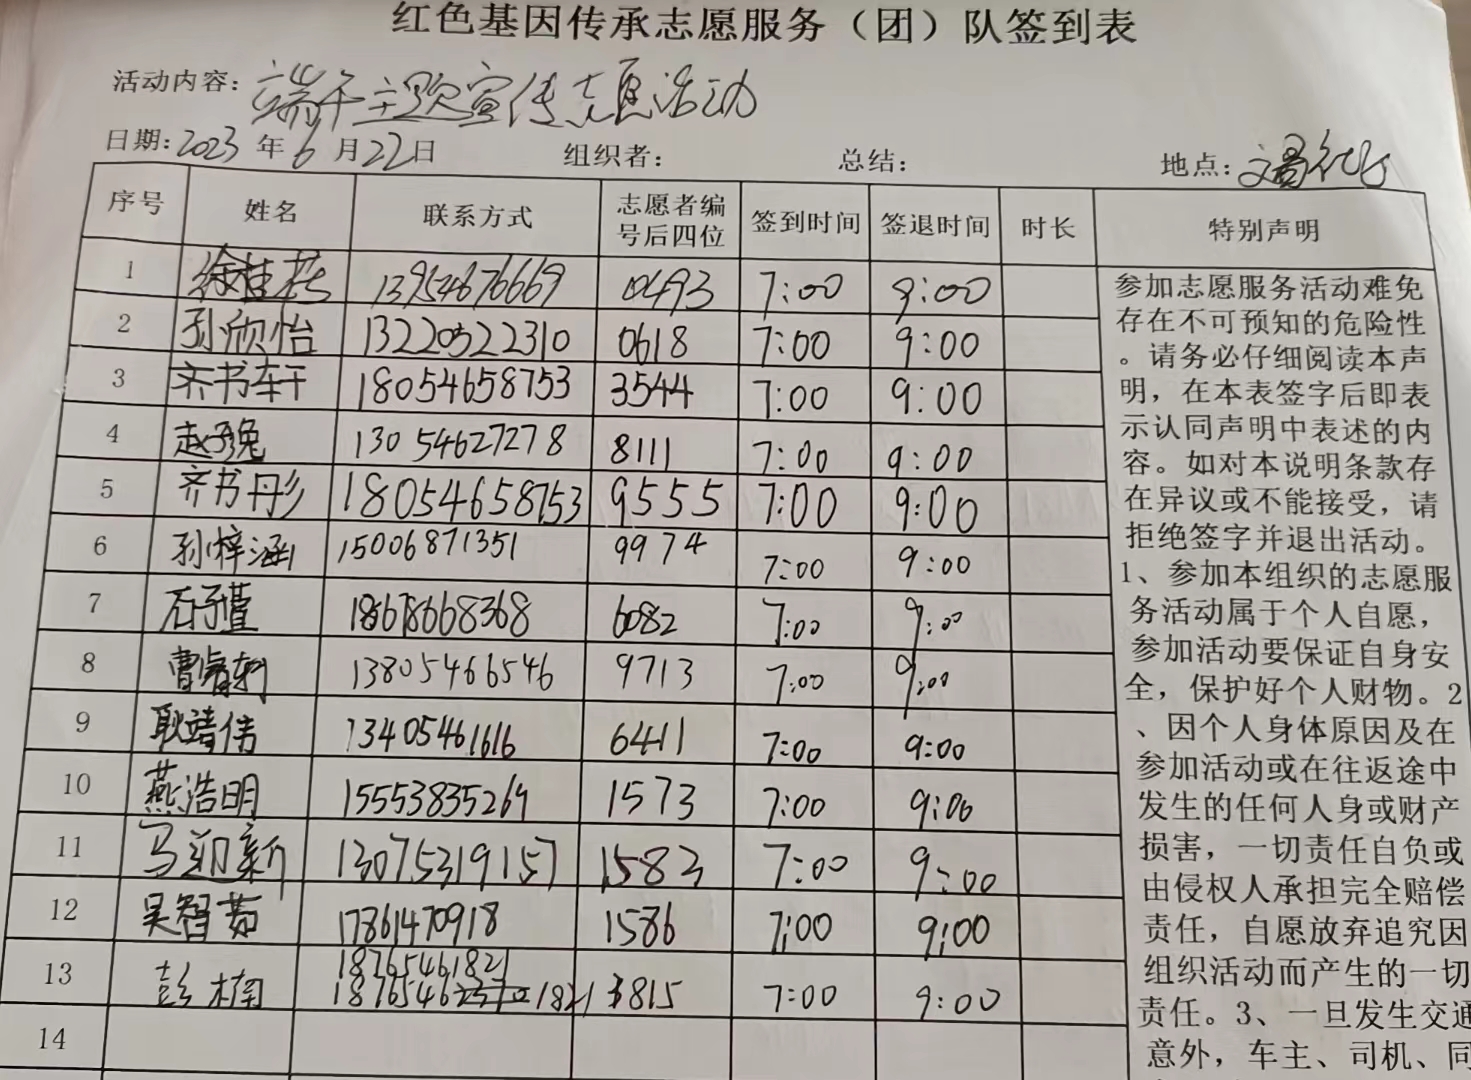 红色基因传承志愿服务（团）队签到表
活动内容：端午主题宣传志愿活动
日期：2023年6月22日 组织者： 总结： 地点：
序号 姓名 联系方式 志愿者编号后四位 签到时间 签退时间 时长 特别声明
1 徐桂花 13954676669 0493 7:00 9:00
2 孙欣怡 13220522310 0618 7:00 9:00
3 齐书轩 18054658753 3544 7:00 9:00
4 赵子逸 13054627278 8111 7:00 9:00
5 齐书丹彡 18054658753 9555 7:00 9:00
6 孙梓涵 15006871351 9974 7:00 9:00
7 石子萱 18678668368 6082 7:00 9:00
8 曹睿轩 13805466546 9713 7:00 9:00
9 耿靖倩 13405461616 6411 7:00 9:00
10 燕浩明 15553835269 1573 7:00 9:00
11 马迎新 13075319157 1583 7:00 9:00
12 吴智茹 17861470918 1586 7:00 9:00
13 彭楠 18765461821 3815 7:00 9:00
1876546 1821
14
参加志愿服务活动难免
存在不可预知的危险性
。请务必仔细阅读本声
明，在本表签字后即表
示认同声明中表述的内
容。如对本说明条款存
在异议或不能接受，请
拒绝签字并退出活动。
1、参加本组织的志愿服
务活动属于个人自愿，
参加活动要保证自身安
全，保护好个人财物。2
、因个人身体原因及在
参加活动或在往返途中
发生的任何人身或财产
损害，一切责任自负或
由侵权人承担完全赔偿
责任，自愿放弃追究因
组织活动而产生的一切
责任。3、一旦发生交通
意外，车主、司机、同